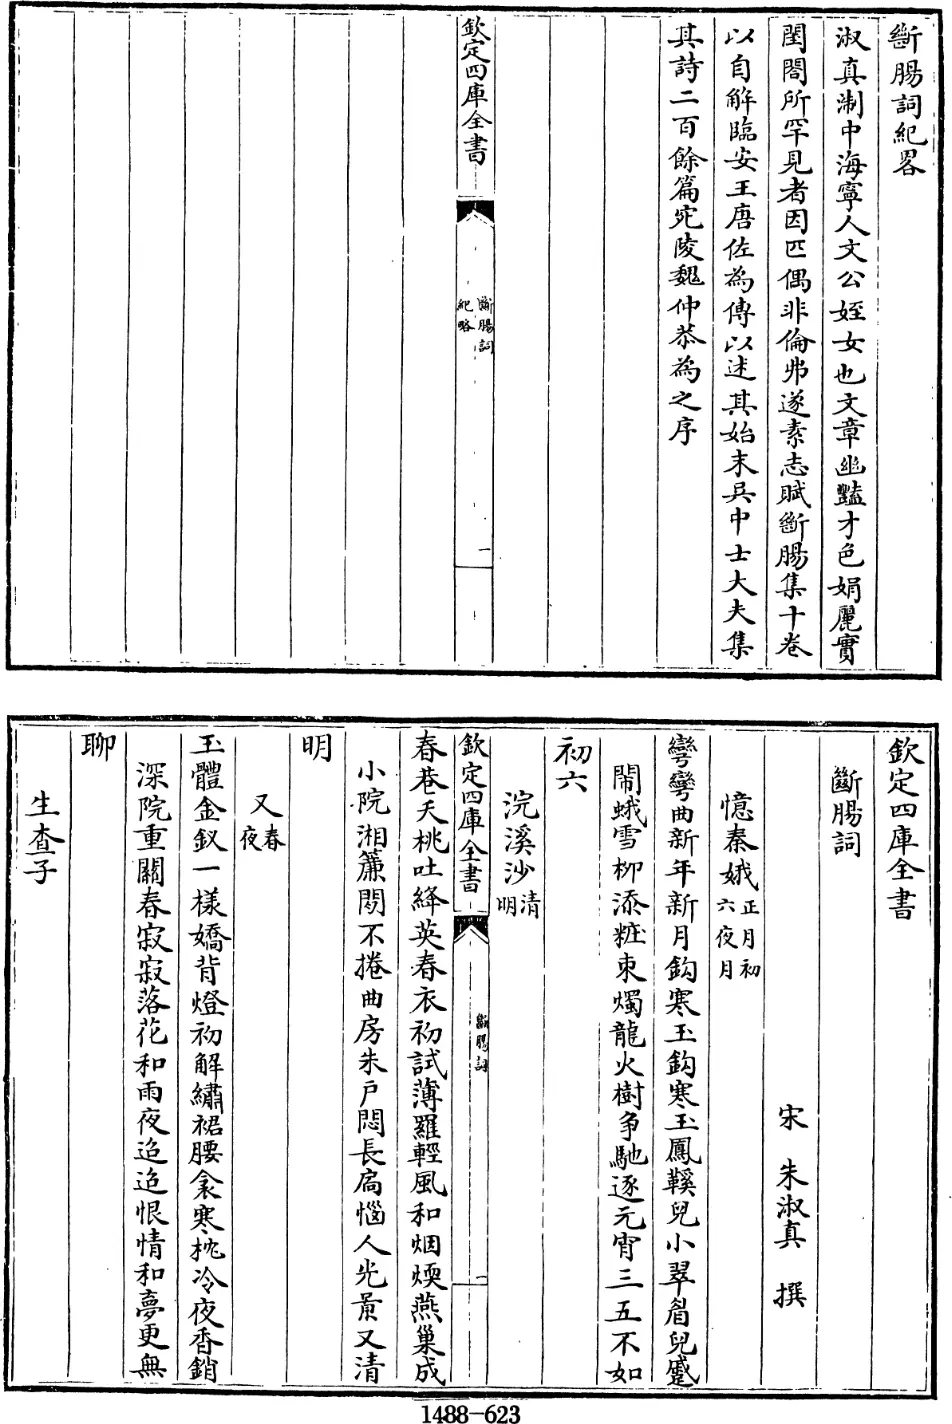 斷腸詞紀畧
淑真淛中海寧人文公姪女也文章幽豔才色娟麗實
閨閤所罕見者因匹偶非倫弗遂素志賦斷腸集十卷
以自解臨安王唐佐為傳以述其始末吳中士大夫集
其詩二百餘篇宛陵魏仲恭為之序
欽定四庫全書
斷腸詞
紀略
一
欽定四庫全書
斷腸詞
宋 朱淑真 撰
憶秦娥正月初
六夜月
彎彎曲新年新月鈎寒玉鈎寒玉鳳鞵兒小翠眉兒蹙
閙蛾雪柳添粧束燭龍火樹争馳逐元宵三五不如
初六
浣溪沙清
明
欽定四庫全書
斷腸詞
一
春巷夭桃吐絳英春衣初試薄羅輕風和烟煗燕巢成
小院湘簾閒不捲曲房朱户悶長扃惱人光景又清
明
又春
夜
玉體金釵一樣嬌背燈初解繡裙腰衾寒枕冷夜香銷
深院重關春寂寂落花和雨夜迢迢恨情和夢更無
聊
生查子
1488-623